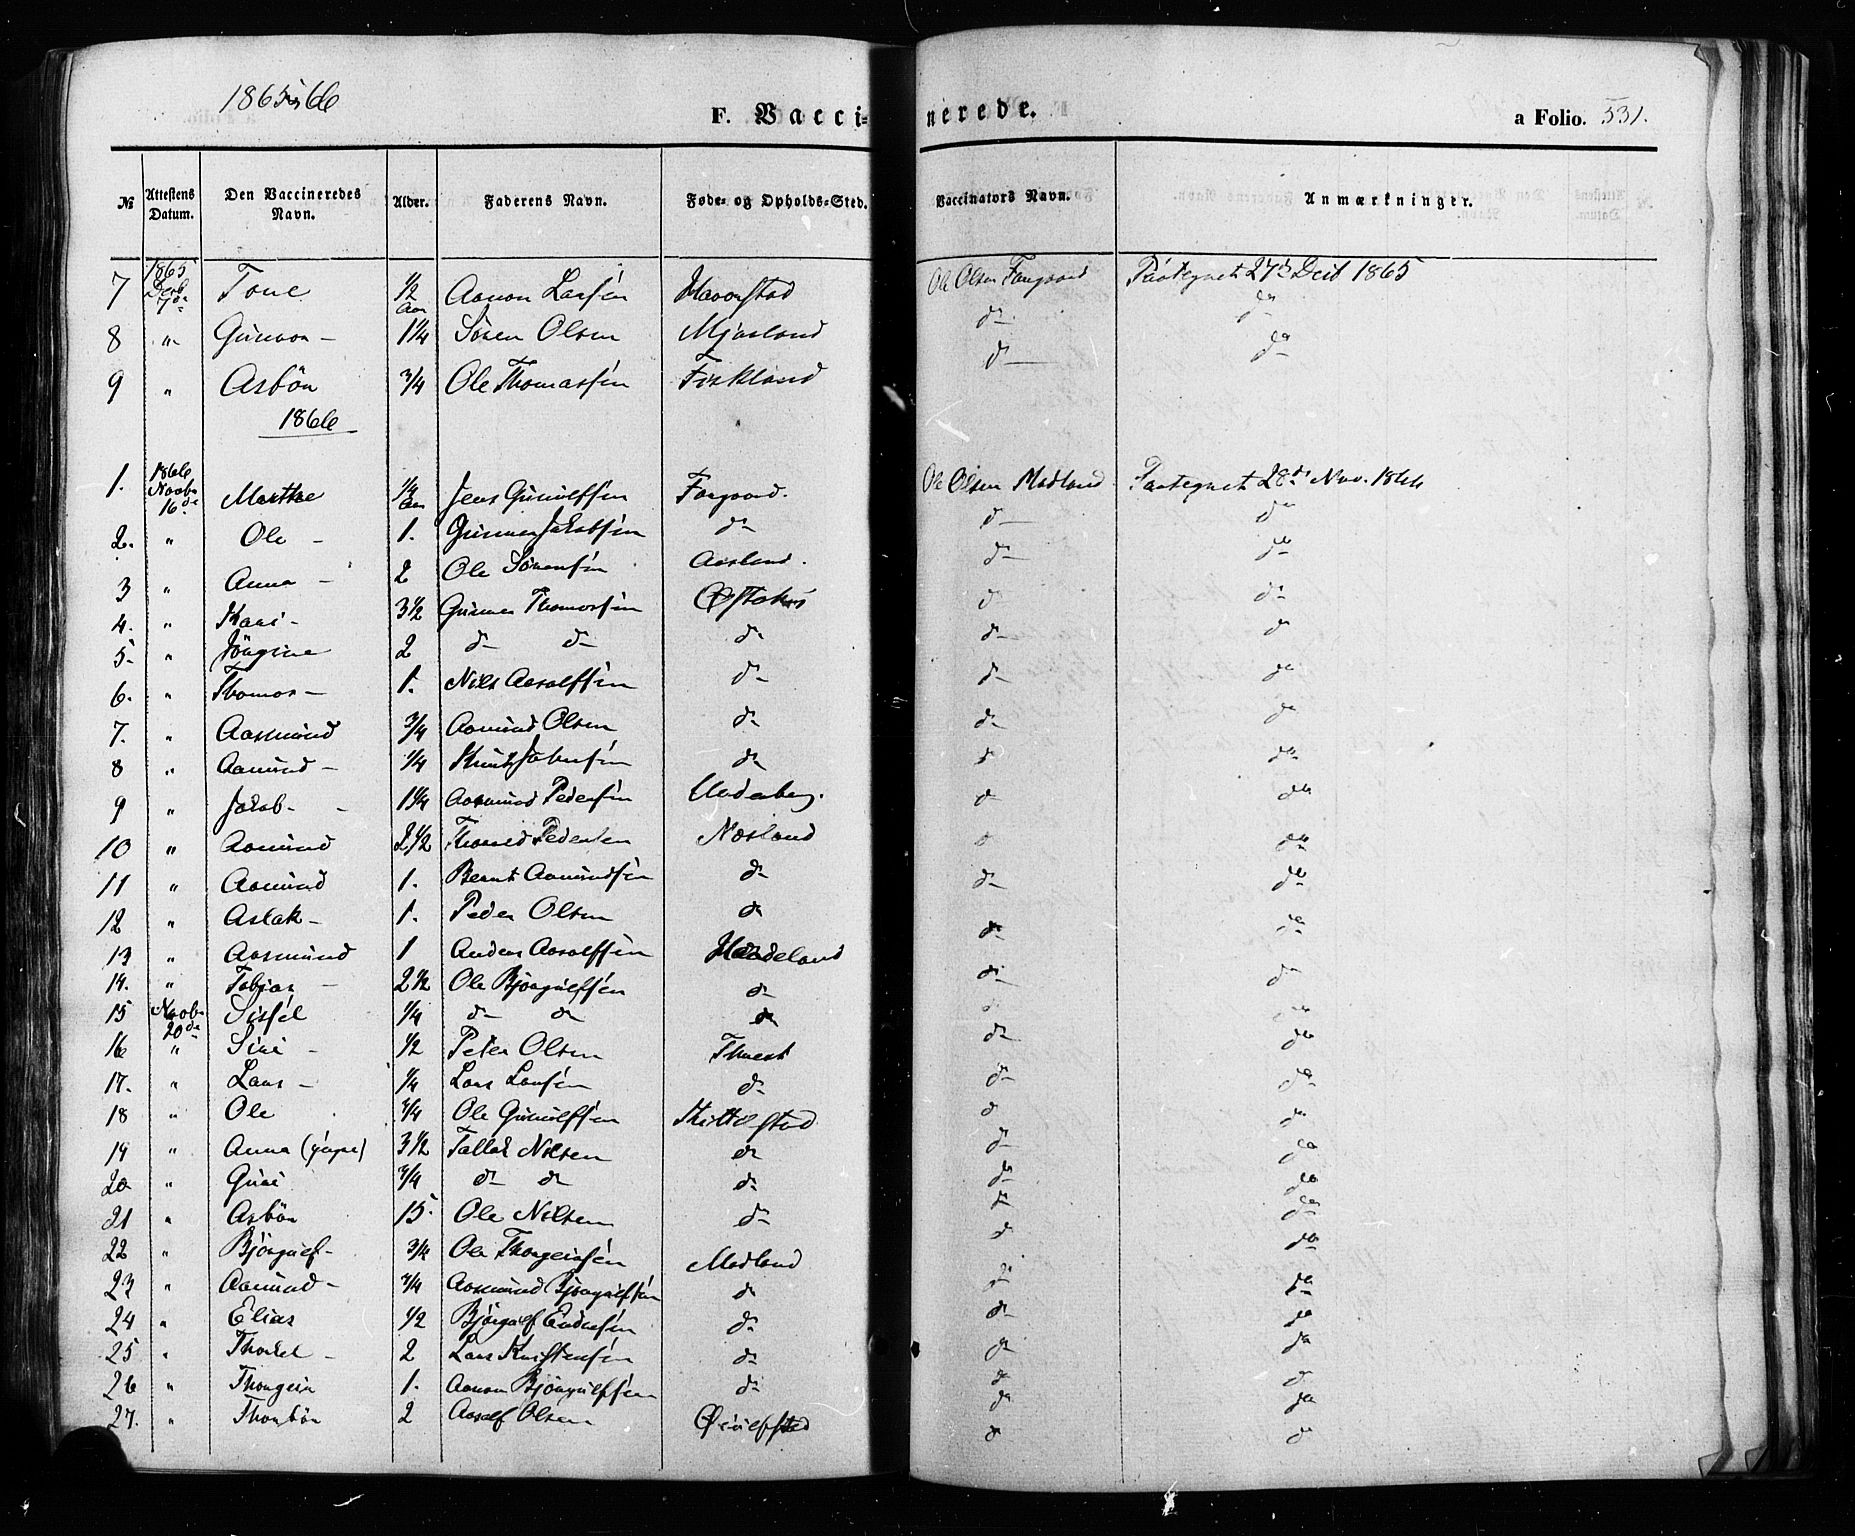 1865 66
F. Vaccinerede. a Folio. 331.
№ Attestens Datum. Den Vaccineredes Navn. Alder. Faderens Navn. Føde- og Opholds-Sted. Vaccinators Navn. Anmærkninger.
7 1865 Decb 7d Tone 1/2 Aar Aanon Larsen Haverstad Ole Olsen Faagaard 27d Decb 1865
8 " Gunvor - 1 1/4 Søren Olsen Mjaaland d- do
9 " Asbør 3/4 Ole Thomassen Fiskland d- do
1866
1. 1866 Novb 16de Marthe 1/2 Aar Jens Gunulfsen Faagaard. Ole Olsen Madland Paategnet 28d Nov. 1866
2. " Ole - 1. Gunner Jakobsen d- d- do
3 " Anna - 2 Ole Sørensen Aasland. d- do
4. " Kari - 3 1/2 Gunner Thomassen d- do
5- " Jörgine 2 d- d- d- d- do
6. " Thomas - 1. Nils Asolffsen d- d- do
7. " Aasmund 3/4 Aamund Olsen d- d- do
8 " Aamund - 1/4 Knut d- d do
9 " Jakob - 1 1/4 Aasmund Pedersen Underberg. d- do
10 " Aamund 2 1/2 Pedersen Næsland d do
11 " Aamund 1. Bernt Aamundsen d- d- do
12 " Aslak - 1. Peder Olsen d- do do
13 " Aasmund 1 Anders Asolffsen Haadeland d- d-
14. " Tobias - 2 1/2 Ole Bjørgulfsen d-
15 Novb 20de Sissel 1/4 d- d- d- d- do
16 " Siri - 1/2 Peter Olsen Thvest d- do
17. " Lars - 1/4 Lars Larsen d- d- do
18 " Ole 3/4 Ole Gunulffsen Kittelstad d do
19 " Anna 3 1/2 Tallak Nilsen d- d- do
20 " Guri 3/4 d- d- d- do do
21 " Asbør 15 Ole Nilsen d- d- do
22 " Bjørgulf - 3/4 Ole Thorgeirsen Madland d do
23 " Aamund - 3/4 Aasmund Bjørgulfsen d- d- do
24 " Elias 1/2 Bjørgulf Endresen d- do do
25 " Thorkel - 2 Lars Kristensen d- do do
26 " Thorgeir 1. Aanon Bjørgulffsen d- do d
27. " Thorbør 2 Asolf Olsen do d